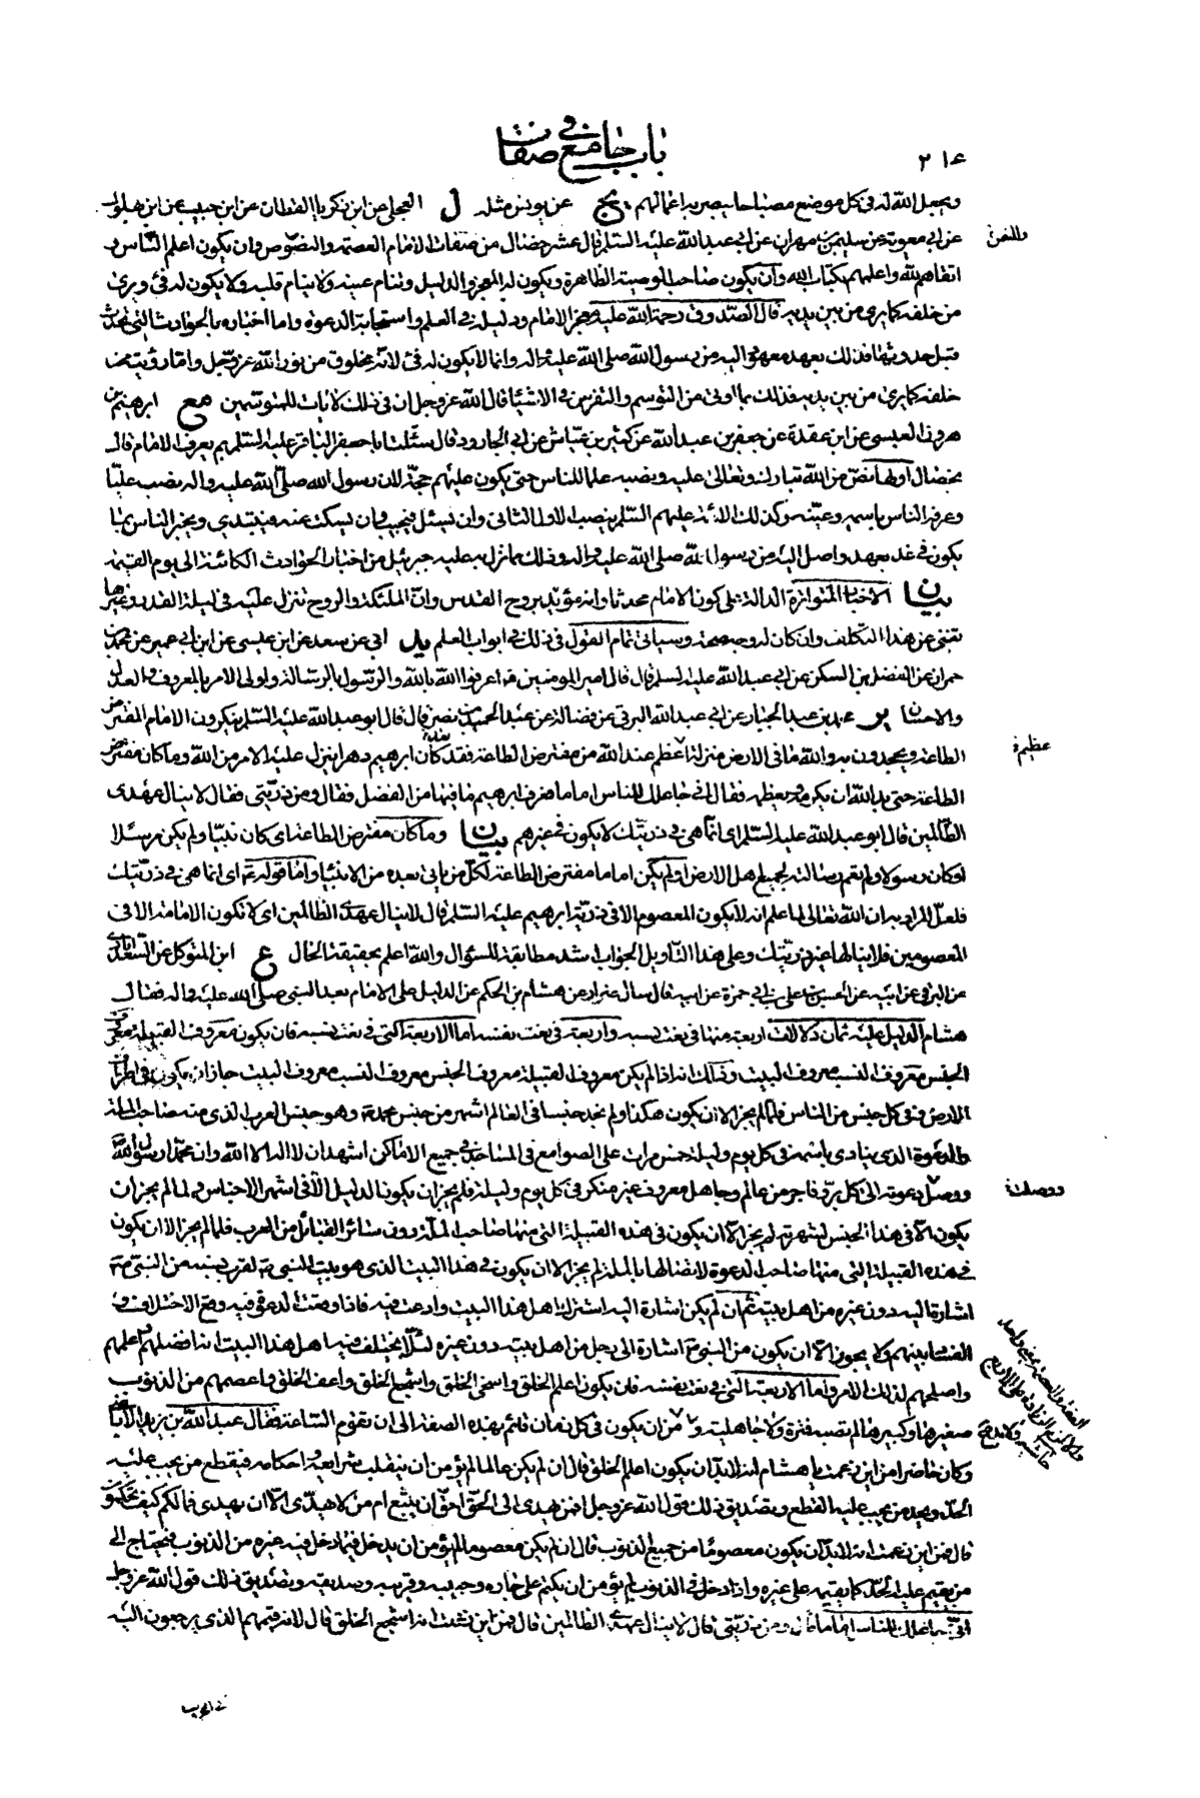 باب جامع في صفات
٢١٤
ويجعل الله له في كل موضع مصباحا يبصر به اعمالهم يج عن يونس مثله ل العجلى عن ابن زكريا القطان عن ابن حبيب عن ابن بهلول
عن ابي معوية عن سليمن بن مهران عن ابي عبد الله عليه السلم قال عشر خصال من صفات الامام العصمة والنصوص وان يكون اعلم الناس و
اتقاهم لله واعلمهم بكتاب الله وان يكون صاحب الوصية الظاهرة ويكون له المعجز والدليل وتنام عينه ولا ينام قلبه ولا يكون له فئ ويرى
من خلفه كما يرى من بين يديه قال الصدوق رحمة الله عليه معجز الامام ودليله في العلم واستجابة الدعوة واما اخباره بالحوادث التي تحدث
قبل حدوثها فذلك بعهد معهود اليه من رسول الله صلى الله عليه واله وانما لا يكون له فئ لانه مخلوق من نور الله عز وجل واما رؤيته من
خلفه كما يرى من بين يديه فذلك بما اوتى من التوسم والتفرس في الاشياء قال الله عز وجل ان في ذلك لايات للمتوسمين مع ابرهيم بن
هرون العبسى عن ابن عقدة عن جعفر بن عبد الله عن كثير بن عياش عن ابي الجارود قال سئلت ابا جعفر الباقر عليه السلم بم يعرف الامام قال
بخصال اولها نص من الله تبارك وتعالى عليه ونصبه علما للناس حتى يكون عليهم حجة لان رسول الله صلى الله عليه واله نصب عليا
وعرفه الناس باسمه وعينه وكذلك الائمة عليهم السلم ينصب الاول الثانى وان يسئل فيجيب وان يسكت عنه فيبتدى ويخبر الناس بما
يكون في غد بعهد واصل اليه من رسول الله صلى الله عليه واله وذلك مما نزل به عليه جبرئيل من اخبار الحوادث الكائنة الى يوم القيمة
بيان الاخبار المتواترة الدالة على كون الامام محدثا وانه مؤيد بروح القدس وان الملئكة والروح تنزل عليه في ليلة القدر وغيرها
تغنى عن هذا التكلف وان كان له وجه صحة وسياتى تمام القول في ذلك في ابواب العلم يد ابي عن سعد عن ابن عيسى عن ابن ابي عمير عن محمد بن
حمران عن الفضل بن السكن عن ابي عبد الله عليه السلم قال قال امير المؤمنين عه اعرفوا الله بالله والرسول بالرسالة واولى الامر بالمعروف والعدل
والاحسان ير محمد بن عبد الجبار عن ابي عبد الله البرقى عن فضالة عن عبد الحميد بن نصر قال قال ابو عبد الله عليه السلم ينكرون الامام المفترض
الطاعة ويجحدون به والله ما في الارض منزلة اعظم عند الله من مفترض الطاعة فقد كان ابرهيم دهرا ينزل عليه الامر من الله وما كان مفترض
الطاعة حتى بدا لله ان يكرمه ويعظمه فقال اني جاعلك للناس اماما فعرف ابرهيم ما فيها من الفضل فقال ومن ذريتى فقال لا ينال عهدى
الظالمين قال ابو عبد الله عليه السلم اى انما هى في ذريتك لا يكون في غيرهم بيان وما كان مفترض الطاعة اى كان نبيا ولم يكن مرسلا
او كان رسولا ولم يعم رسالته لجميع اهل الارض او لم يكن اماما مفترض الطاعة لكل من ياتى بعده من الانبياء واما قوله عه اى انما هى في ذريتك
فلعل المراد به ان الله تعالى لما علم انه لا يكون المعصوم الا في ذرية ابرهيم عليه السلم قال لا ينال عهدى الظالمين اى لا تكون الامامة الا في
المعصومين فلا ينالها غير ذريتك وعلى هذا التاويل الجواب اشد مطابقة للسؤال والله اعلم بحقيقة الحال ع ابن المتوكل عن السعدابادى
عن البرقى عن ابيه عن الحسين بن على بن ابي حمزة عن ابيه قال سال ضرار عن هشام بن الحكم عن الدليل على الامام بعد النبي صلى الله عليه واله فقال
هشام الدليل عليه ثمان دلالات اربعة منها في نعت نسبه واربعة في نعت نفسه اما الاربعة التى في نعت نسبه فان يكون معروف القبيلة معروف
الجنس معروف النسب معروف البيت وذلك انه اذا لم يكن معروف القبيلة معروف الجنس معروف النسب معروف البيت جاز ان يكون في اطراف
الارض وفى كل جنس من الناس فلما لم يجز الا ان يكون هكذا ولم نجد جنسا في العالم اشهر من جنس محمد ص وهو جنس العرب الذى منه صاحب الملة
والدعوة الذى ينادى باسمه في كل يوم وليلة خمس مرات على الصوامع في المساجد في جميع الاماكن اشهد ان لا اله الا الله وان محمدا رسول الله
ووصل دعوته الى كل بر وفاجر من عالم وجاهل معروف غير منكر في كل يوم وليلة فلم يجز ان يكون الدليل الا في اشهر الاجناس ولما لم يجز ان
يكون الا في هذا الجنس لشهرته لم يجز الا ان يكون في هذه القبيلة التى منها صاحب الملة دون سائر القبائل من العرب فلما لم يجز الا ان يكون
في هذه القبيلة التى منها صاحب الدعوة لاتصالها بالملة لم يجز الا ان يكون في هذا البيت الذى هو بيت النبي ص لقرب نسبه من النبي ص
اشارة اليه دون غيره من اهل بيته ثم ان لم يكن اشارة اليه اشترك اهل هذا البيت وادعت فيه فاذا وقعت الدعوى فيه وقع الاختلاف و
الفساد بينهم ولا يجوز الا ان يكون من النبي ص اشارة الى رجل من اهل بيته دون غيره لئلا يختلف فيه اهل هذا البيت انه افضلهم واعلمهم
واصلحهم لذلك الامر واما الاربعة التى في نعت نفسه فان يكون اعلم الخلق واسخى الخلق واشجع الخلق واعف الخلق واعصمهم من الذنوب
صغيرها وكبيرها لم تصبه فترة ولا جاهلية ولا من ان يكون في كل زمان قائم بهذه الصفة الى ان تقوم الساعة فقال عبد الله بن يزيد الاباضى
وكان حاضرا من اين زعمت يا هشام انه لابد ان يكون اعلم الخلق قال ان لم يكن عالما لم يؤمن ان ينقلب شرايعه واحكامه فيقطع من يجب عليه
الحد ويحد من يجب عليه القطع وتصديق ذلك قول الله عز وجل افمن يهدى الى الحق احق ان يتبع ام من لا يهدى الا ان يهدى فما لكم كيف تحكمون
قال فمن اين زعمت انه لابد ان يكون معصوما من جميع الذنوب قال ان لم يكن معصوما لم يؤمن ان يدخل فيما دخل فيه غيره من الذنوب فيحتاج الى
من يقيم عليه الحد كما يقيمه على غيره واذا دخل في الذنوب لم يؤمن ان يكتم على جاره وحبيبه وقريبه وصديقه وتصديق ذلك قول الله عز وجل
اني جاعلك للناس اماما قال ومن ذريتى قال لا ينال عهدى الظالمين قال فمن اين زعمت انه اشجع الخلق قال لانه قيمهم الذى يرجعون اليه
والنص
عظيمة
ووصلت
في الحرب